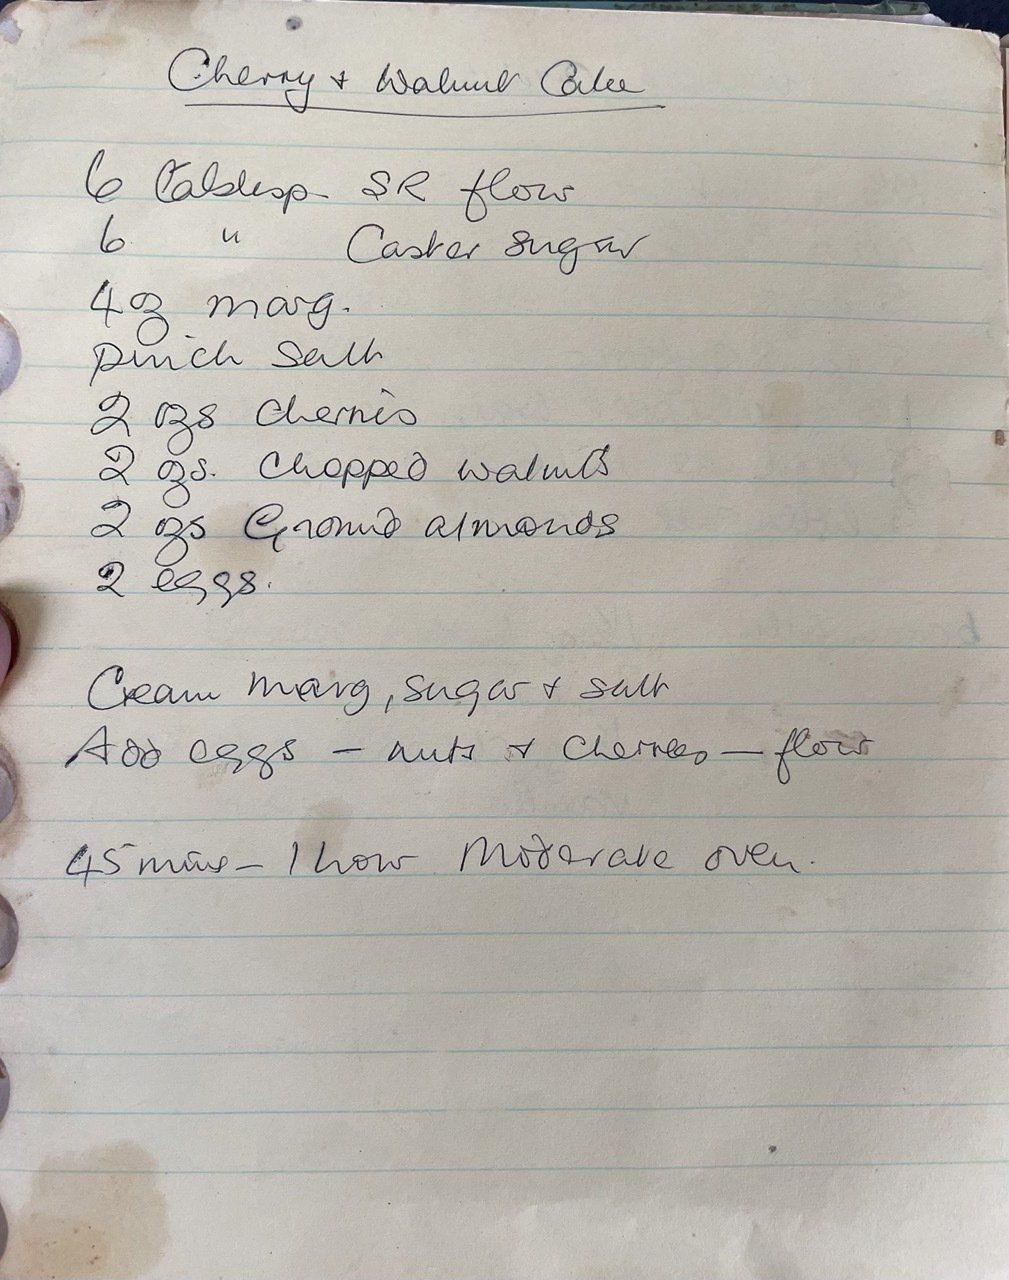 Cherry + Walnut Cake
6 Tablesp - SR flour
6 " Caster sugar
4oz marg.
pinch Salt
2 ozs cherries
2 ozs. chopped walnuts
2 ozs Ground almonds
2 eggs.
Cream marg, sugar + salt
Add eggs - nuts + cherries - flour
45 mins - 1 hour Moderate oven.